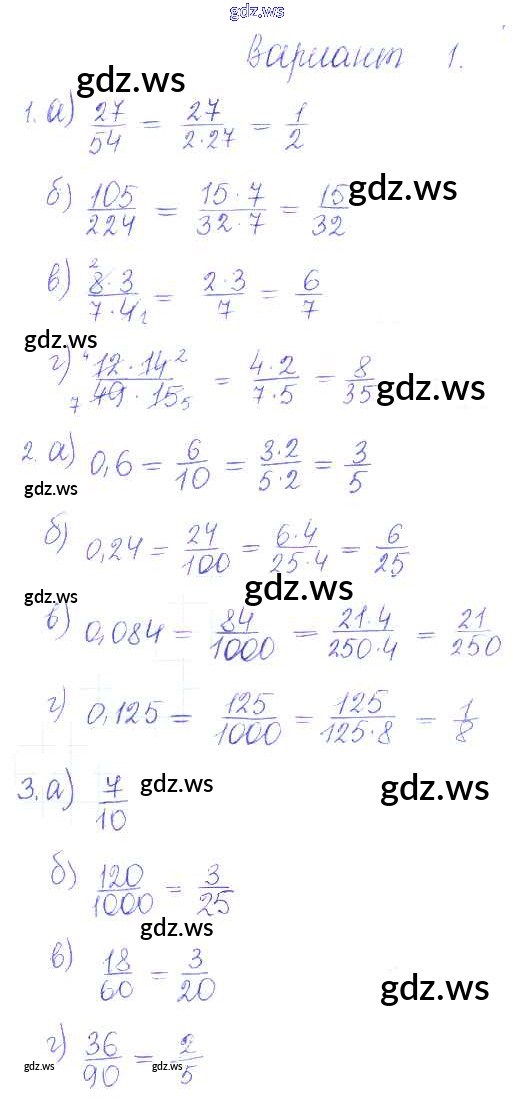 gdz.ws
Вариант 1.
gdz.ws
1. а) 27/54 = 27/(2·27) = 1/2
б) 105/224 = (15·7)/(32·7) = 15/32 gdz.ws
в) (8·3)/(7·4) = (2·3)/7 = 6/7
2 1
gdz.ws
г) (12·14)/(49·15) = (4·2)/(7·5) = 8/35 gdz.ws
4 2 7 5
2. а) 0,6 = 6/10 = (3·2)/(5·2) = 3/5
gdz.ws
б) 0,24 = 24/100 = (6·4)/(25·4) = 6/25
gdz.ws gdz.ws
в) 0,084 = 84/1000 = (21·4)/(250·4) = 21/250
г) 0,125 = 125/1000 = 125/(125·8) = 1/8
3. а) 7/10 gdz.ws gdz.ws
б) 120/1000 = 3/25
gdz.ws
в) 18/60 = 3/20 gdz.ws
г) 36/90 = 2/5
gdz.ws gdz.ws